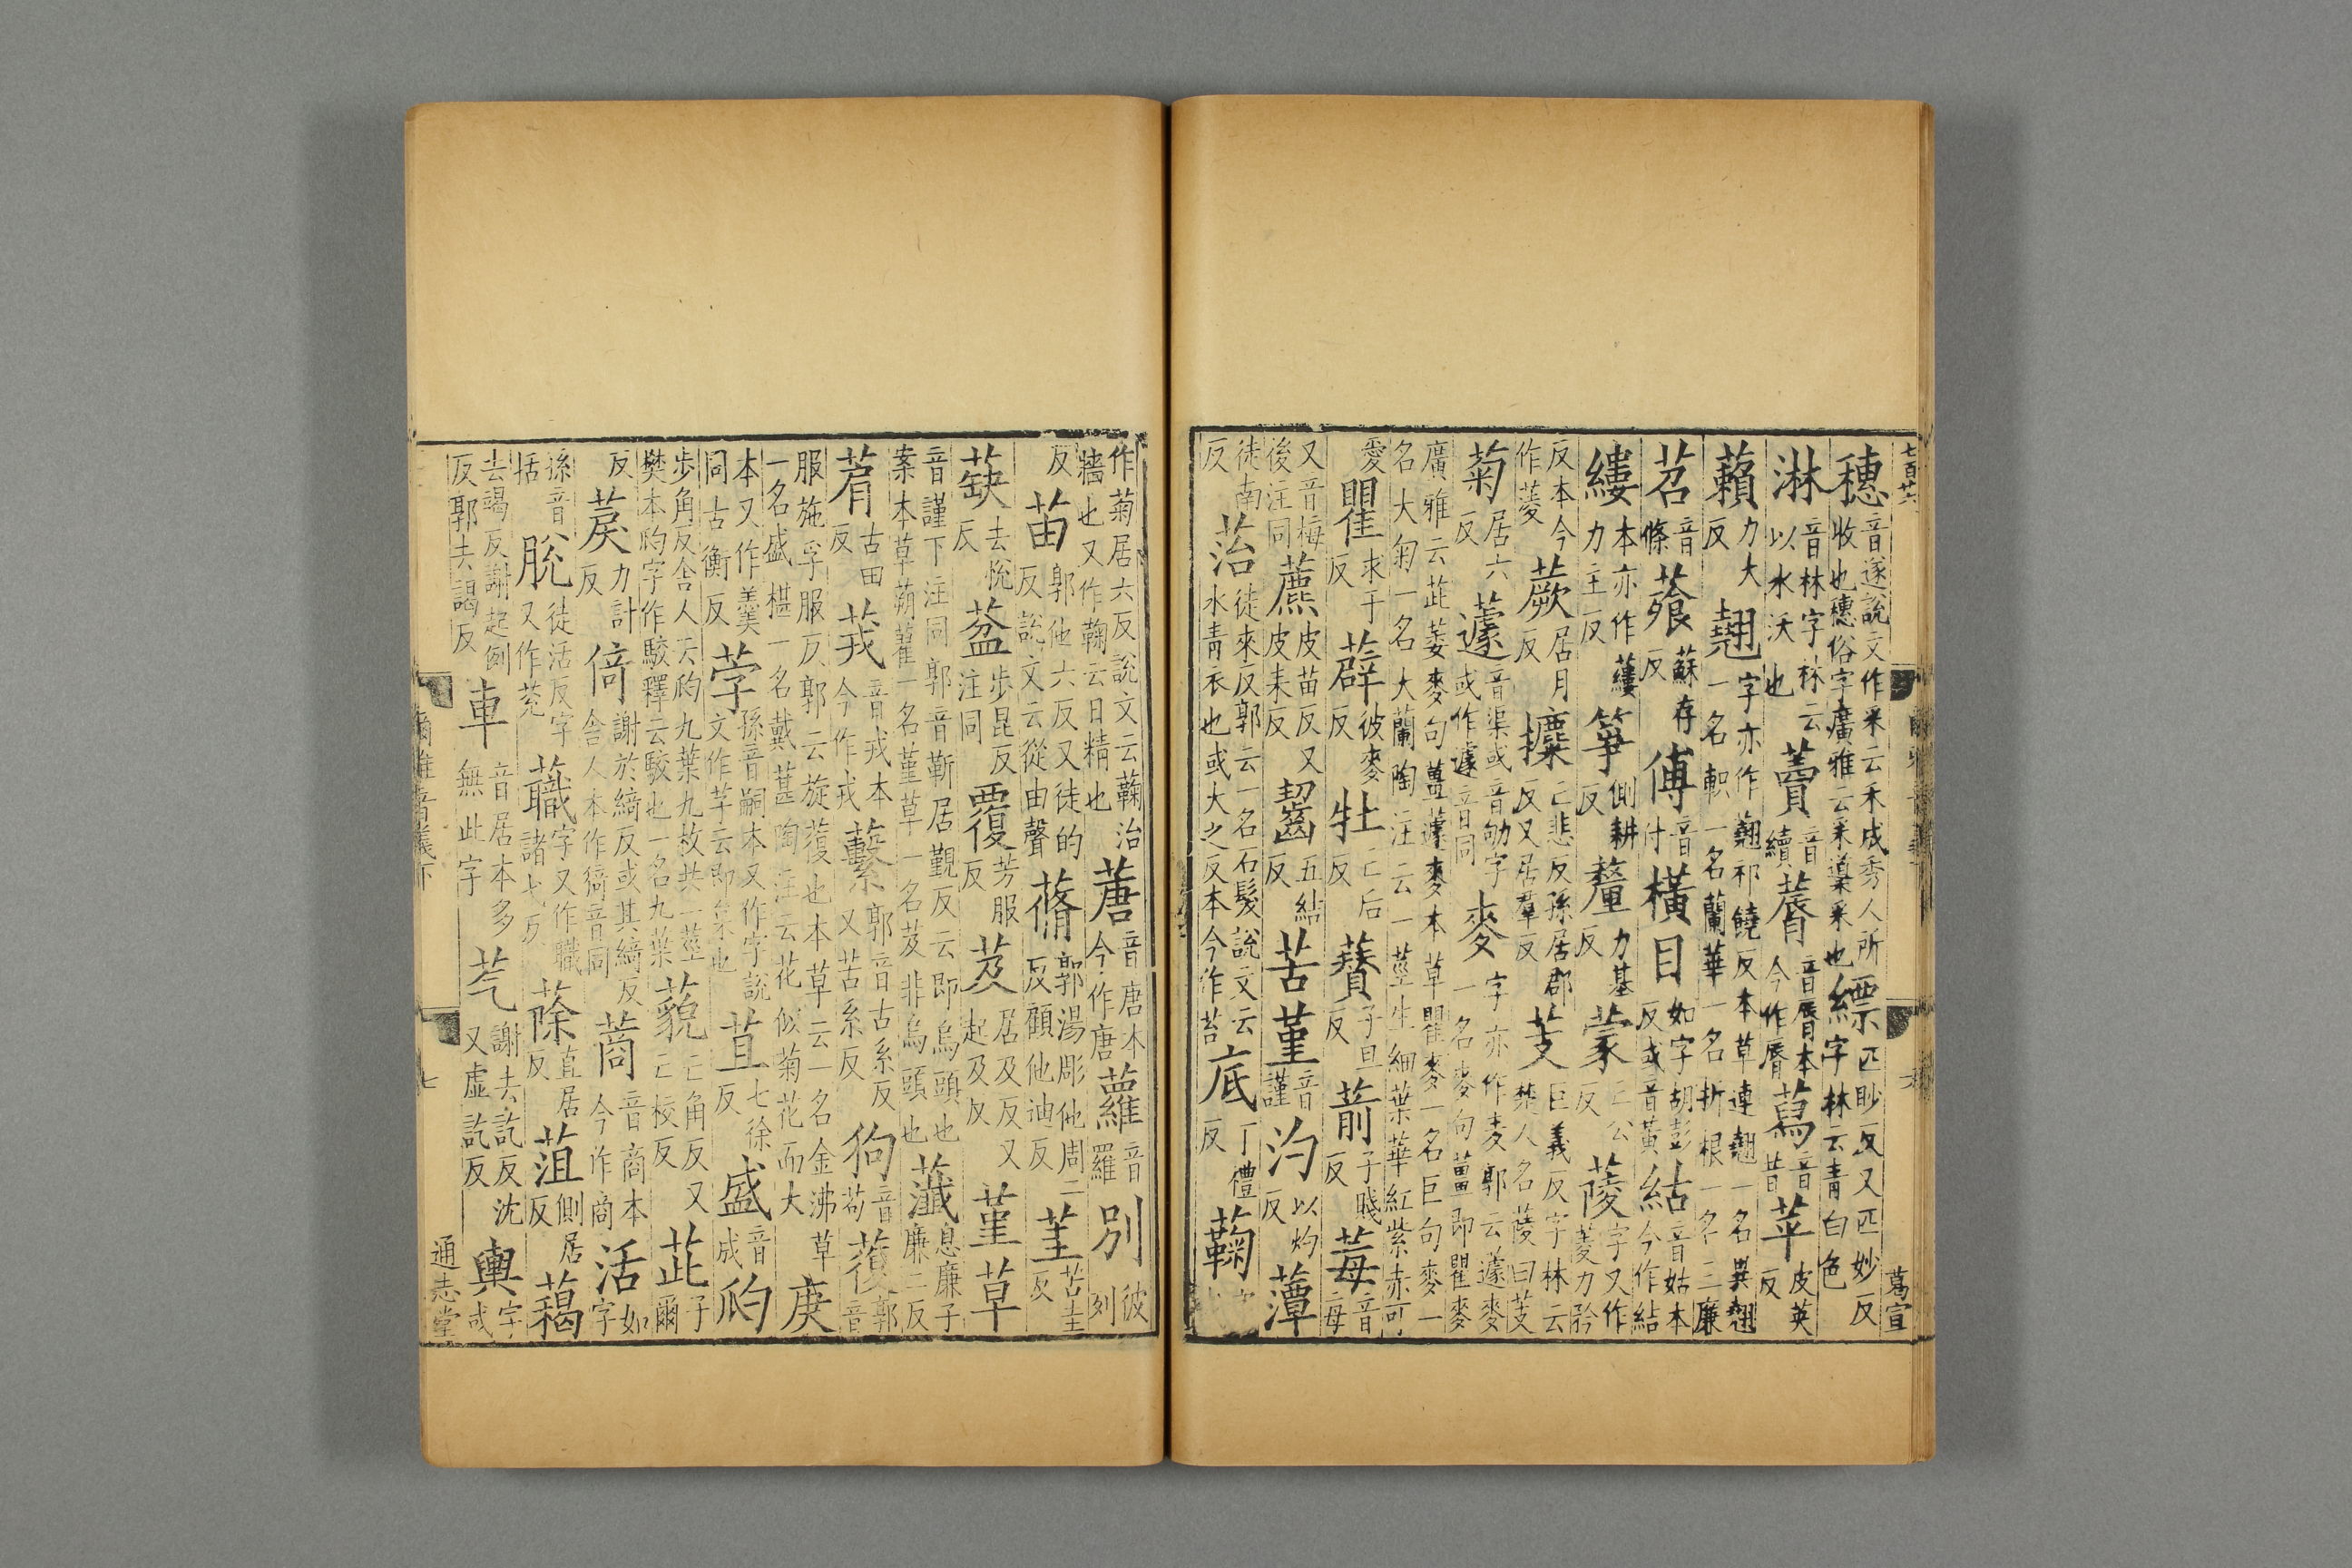 七百廿六　葛宣
穗音遂說文作采云禾成秀人所收也穗俗字廣雅云采䆃采也縹匹眇反又匹妙反字林云青白色
淋音林字林云以水沃也藚音續蓐音脣本今作脣蕮音昔苹皮英反
藾力大反翹字亦作䎗祁饒反本草連翹一名異翹一名軹一名蘭華一名折根一名三廉
苕音條蕵蘇存反傅音付橫目如字胡彭反或音黃結音姑本今作結
縷本亦作蔞力主反筝側耕反釐力基反蒙亡公反䔖字又作菱力矜
反本今作蔆蕨居月反攗亡悲反孫居郡反又居羣反芰巨義反字林云楚人名䔖曰芰
菊居六反蘧音渠或音劬字或作遽音同麥字亦作麦郭云蘧麥一名麥句薑即瞿麥
廣雅云茈葳麥句薑蘧麥本草瞿麥一名巨句麥一名大菊一名大蘭陶注云一莖生細葉華紅紫赤可
愛瞿求于反薜彼麥反牡亡后反䕬子旦反葥子賤反莓音母
又音梅後注同藨皮苗反又皮表反齧五結反苦菫音謹汋以灼反藫
徒南反菭徒來反郭云一名石髮說文云水青衣也或大之反本今作苔底丁禮反蘜
作菊居六反說文云蘜治牆也又作鞠云日精也蓎音唐本今作唐蘿音羅別彼列
反苗郭他六反又徒的反說文云從由聲蓨郭湯彫他周二反顧他迪反茥苦圭反
蒛去悅反葐步昆反注同覆芳服反芨居及反又起及反菫草
音謹下注同郭音靳居覲反云即烏頭也案本草蒴藋一名菫草一名芨非烏頭也䕭息廉子廉二反
菺古田反茙音戎本今作戎蘻郭音古系反又苦系反狗音苟蕧郭音
服施孚服反郭云旋蕧也本草云一名金沸草一名盛椹一名戴葚陶注云花似菊花而大庚
本又作羹同古衡反荢孫音嗣本又作字說文作芓云即枲也苴七徐反盛音成瓝
步角反舍人云瓝九葉九枚共一莖樊本瓝字作駮釋云駮也一名九葉藐亡角反又亡校反茈子爾
反䓞力計反倚謝於綺反或其綺反舍人本作猗音同蔏音商本今作商活如字
孫音括脫徒活反字又作莌蘵字又作職諸弋反蒢直居反菹側居反藒
去竭反謝起例反郭去謁反車音居本多無此字芞謝去訖反沈又虛訖反輿字或
爾雅音義下　七　通志堂